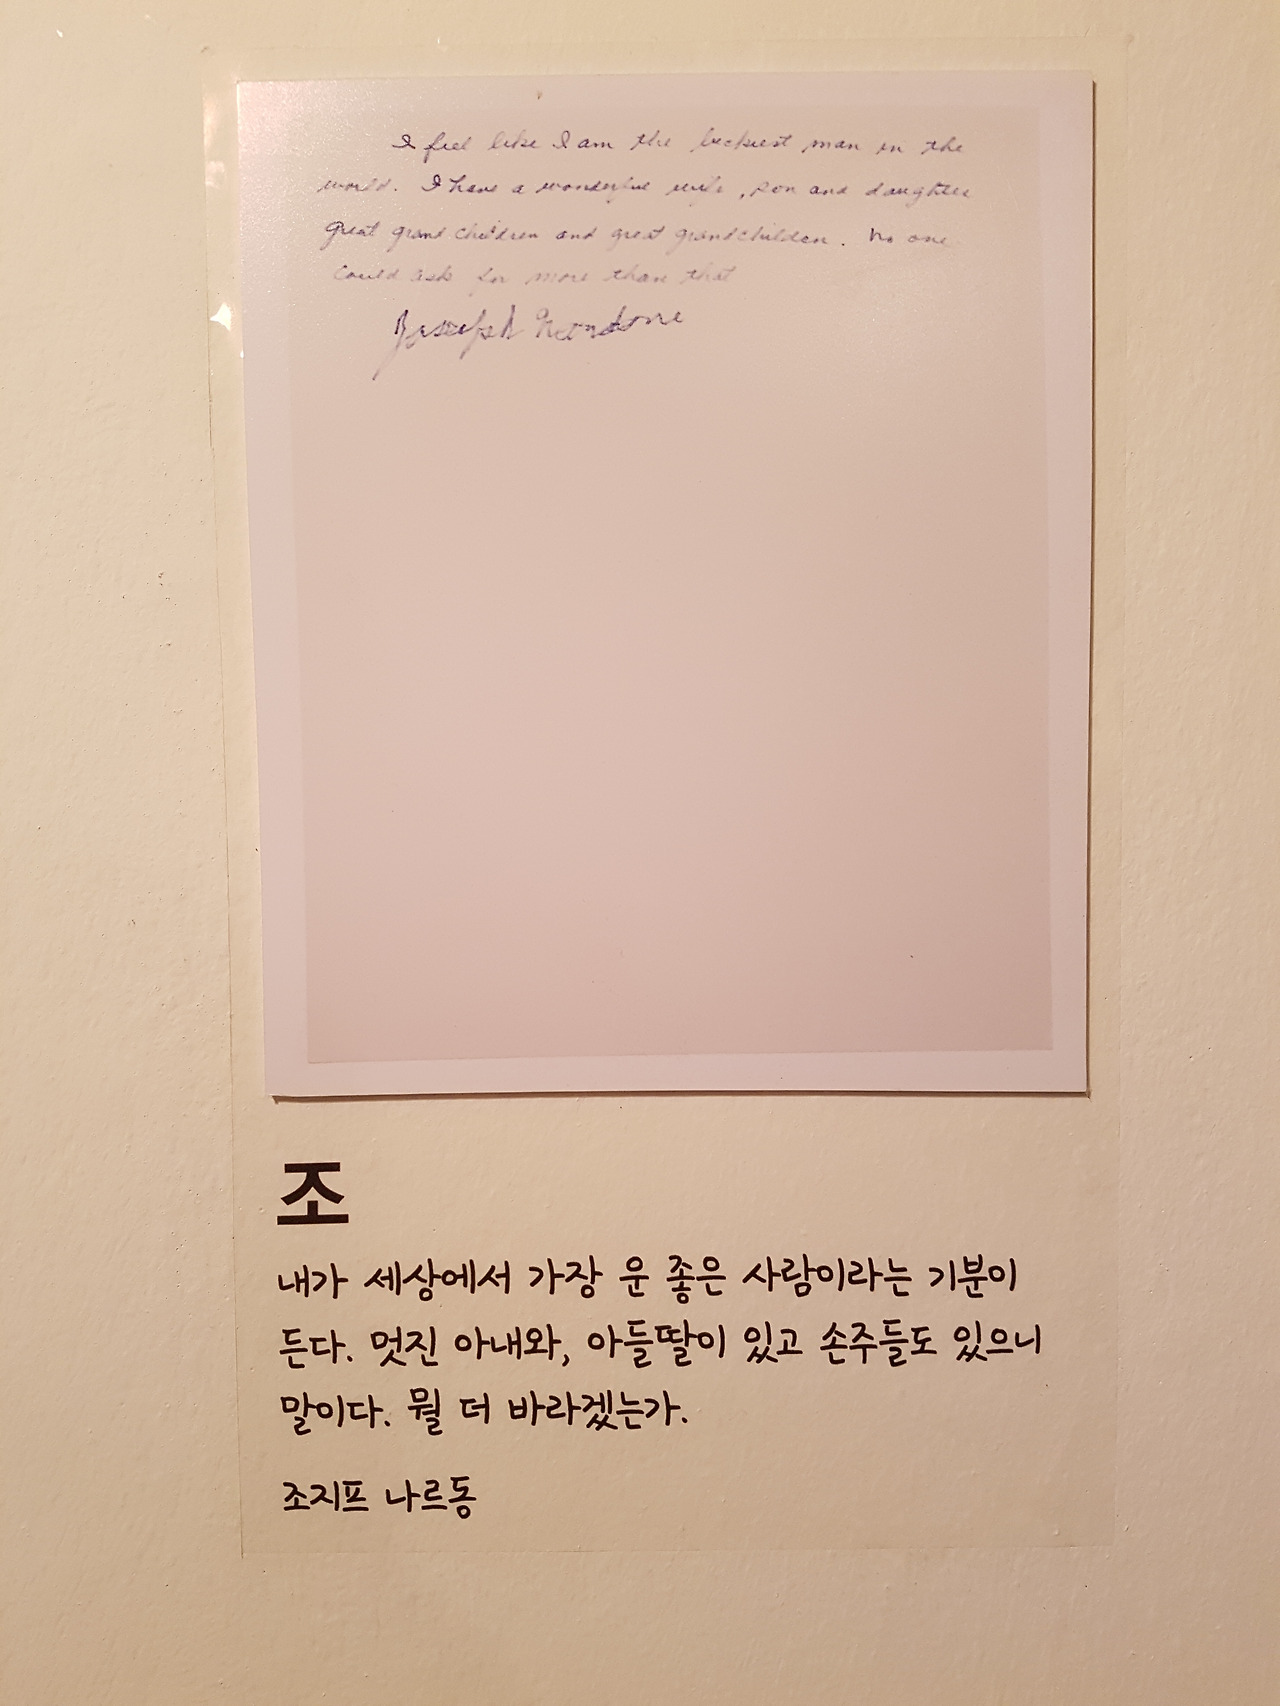 I feel like I am the luckiest man in the
world. I have a wonderful wife, son and daughter
great grand children and great grandchildren. No one
could ask for more than that
Joseph Nardone
조
내가 세상에서 가장 운 좋은 사람이라는 기분이
든다. 멋진 아내와, 아들딸이 있고 손주들도 있으니
말이다. 뭘 더 바라겠는가.
조지프 나르동